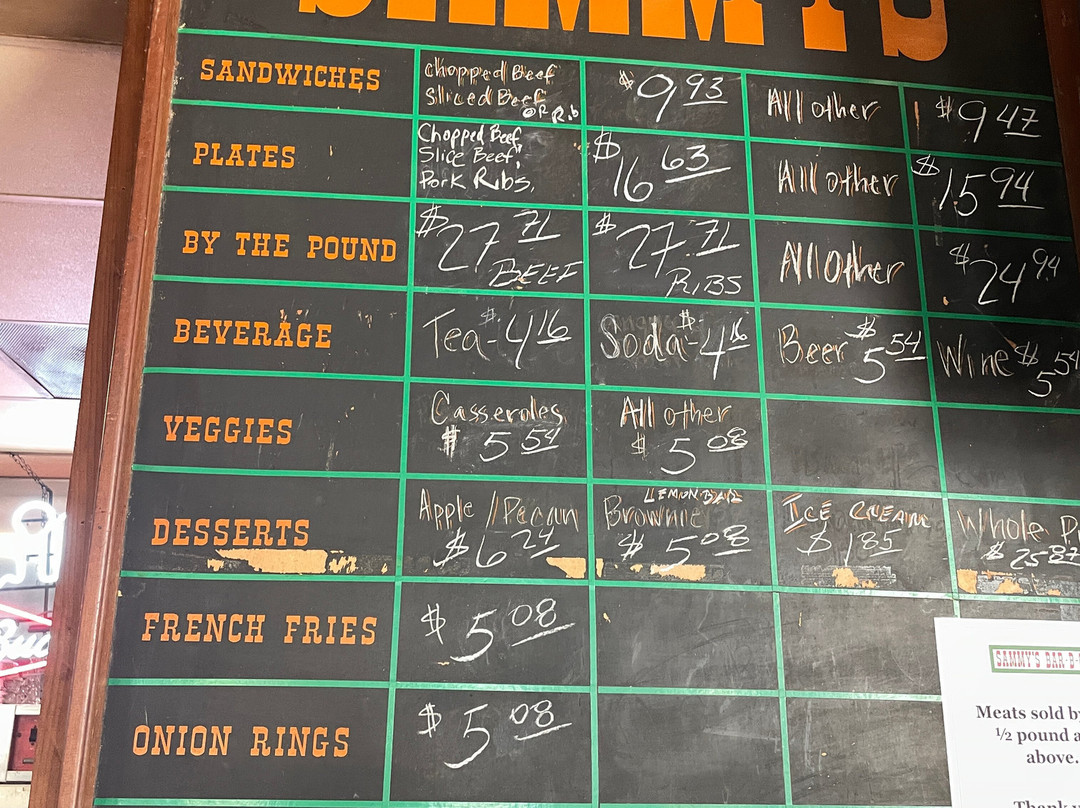 SAMMY'S
SANDWICHES
Chopped Beef
Sliced Beef
OR Rib
$9 93
All other
$9 47
PLATES
Chopped Beef,
Slice Beef,
Pork Ribs,
$16 63
All other
$15 94
BY THE POUND
$27 71
BEEF
$27.71
RIBS
All other
$24 94
BEVERAGE
Tea-$4 16
Soda-$4 16
Beer $5 54
Wine $5 54
VEGGIES
Casseroles
$5 54
All other
$5 08
DESSERTS
Apple/Pecan
$6 24
LEMON BAR
Brownie
$5 08
ICE CREAM
$1 85
Whole P
$25 87
FRENCH FRIES
$5 08
ONION RINGS
$5 08
SAMMY'S BAR-B-
Meats sold by
½ pound a
above.
Thank